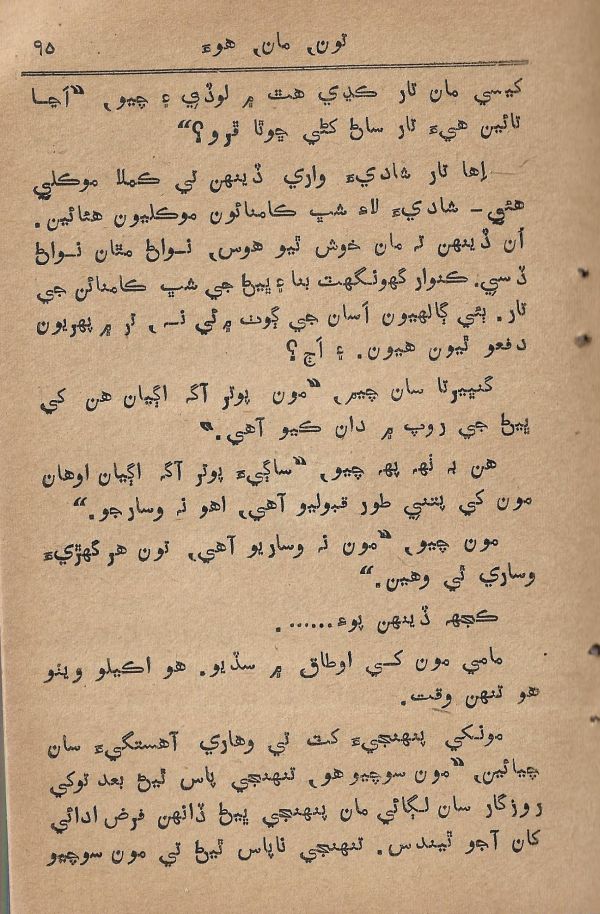 تون، مان، هوءَ
٩٥
کيسي مان تار ڪڍي هٿ ۾ لوڏي ۽ چيو، ”اَڃا
تائين هيءَ تار ساڻ کڻي ڇوٿا ڦرو؟“
اِها تار شاديءَ واري ڏينهن تي ڪملا موڪلي
هئي - شاديءَ لاءِ شڀ ڪامنائون موڪليون هئائين.
اُن ڏينهن تہ مان خوش ٿيو هوس، نـواڻ مٿان نـواڻ
ڏسي. ڪنوار گهونگهٽ بنا ۽ ڀيڻ جي شڀ ڪامنائن جي
تار. ٻئي ڳالهيون اَسان جي ڳوٺ ۾ ئي نـہ، تر ۾ پهريون
دفعو ٿيون هيون. ۽ اَڄ؟
گنڀيرتا سان چيم، ”مون پوتر آگہ اڳيان هن کي
ڀيڻ جي روپ ۾ دان ڪيو آهي.“
هن بہ ٺهہ پهہ چيو، ”ساڳيءَ پوتر آگہ اڳيان اوهان
مون کي پتني طور قبوليو آهي، اهو نہ وسارجو.“
مون چيو، ”مون نہ وساريو آهي، تون هر گهڙيءَ
وساري ٿي وهين.“
ڪجهہ ڏينهن پوءِ.......
مامي مون کـي اوطاق ۾ سڏيو. هو اڪيلو ويٺو
هو تنهن وقت.
مونکي پنهنجيءَ کٽ تي وهاري آهستگيءَ سان
چيائين، ”مون سوچيو هو، تنهنجي پاس ٿيڻ بعد توکي
روزگار سان لڳائي مان پنهنجي ڀيڻ ڏانهن فرض ادائي
کان آجو ٿيندس. تنهنجي ناپاس ٿيڻ تي مون سوچيو